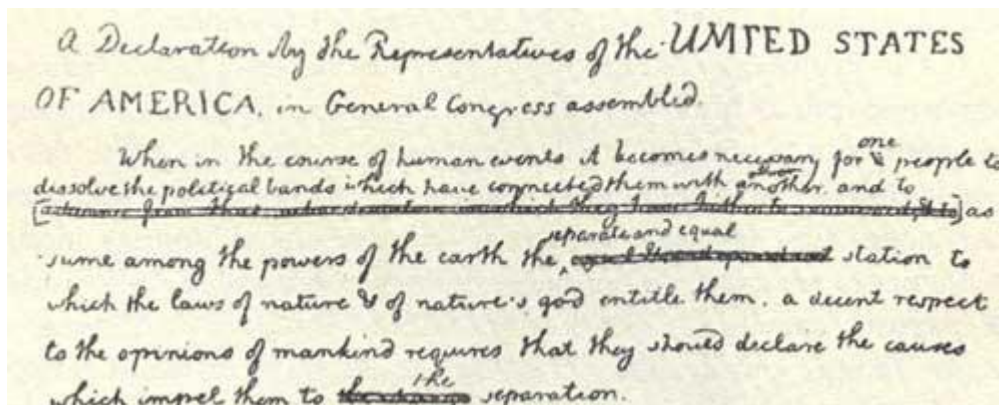 A Declaration by the Representatives of the UNITED STATES
OF AMERICA, in General Congress assembled.
When in the course of human events it becomes necessary for one people to
dissolve the political bands which have connected them with another, and to
[advance from that subordination in which they have hitherto remained, & to] as
separate and equal
sume among the powers of the earth the equal & independant station to
which the laws of nature & of nature's god entitle them, a decent respect
to the opinions of mankind requires that they should declare the causes
the
which impel them to the change separation.